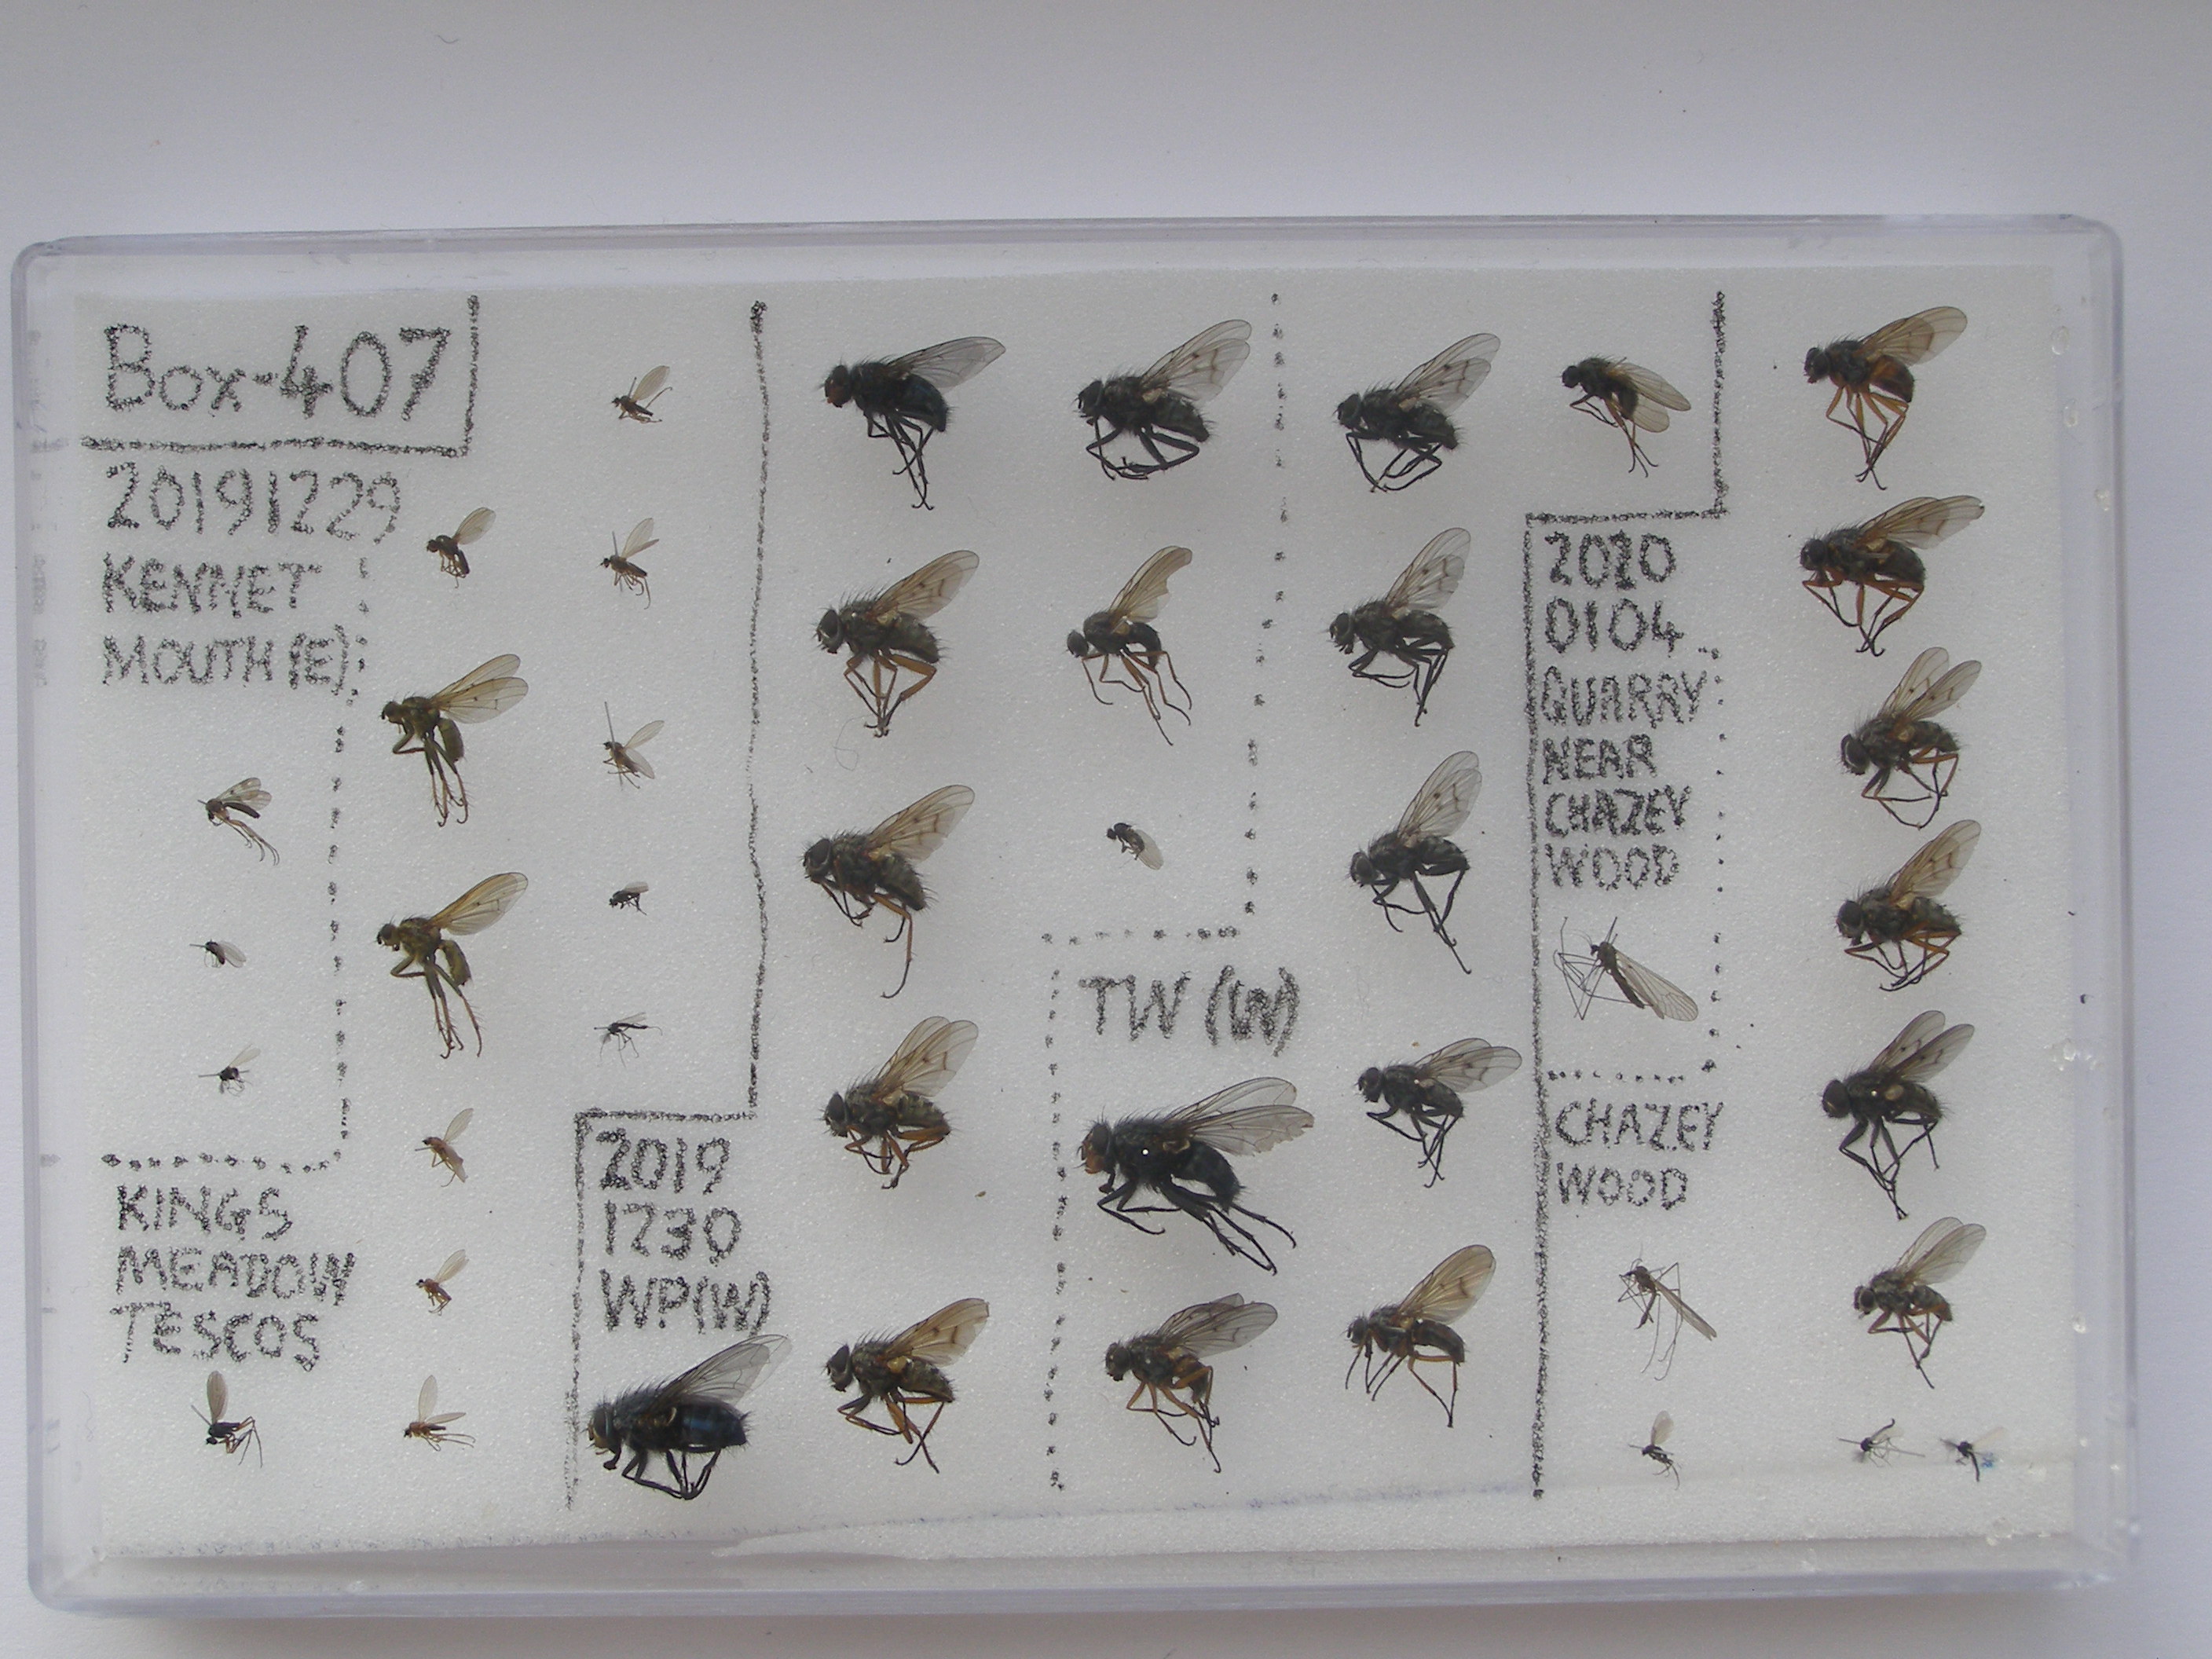 Box-407
20191229
KENNET
MOUTH (E)
KINGS
MEADOW
TESCOS
2019
1230
WP(W)
TW (W)
2020
0104
QUARRY
NEAR
CHAZEY
WOOD
CHAZEY
WOOD